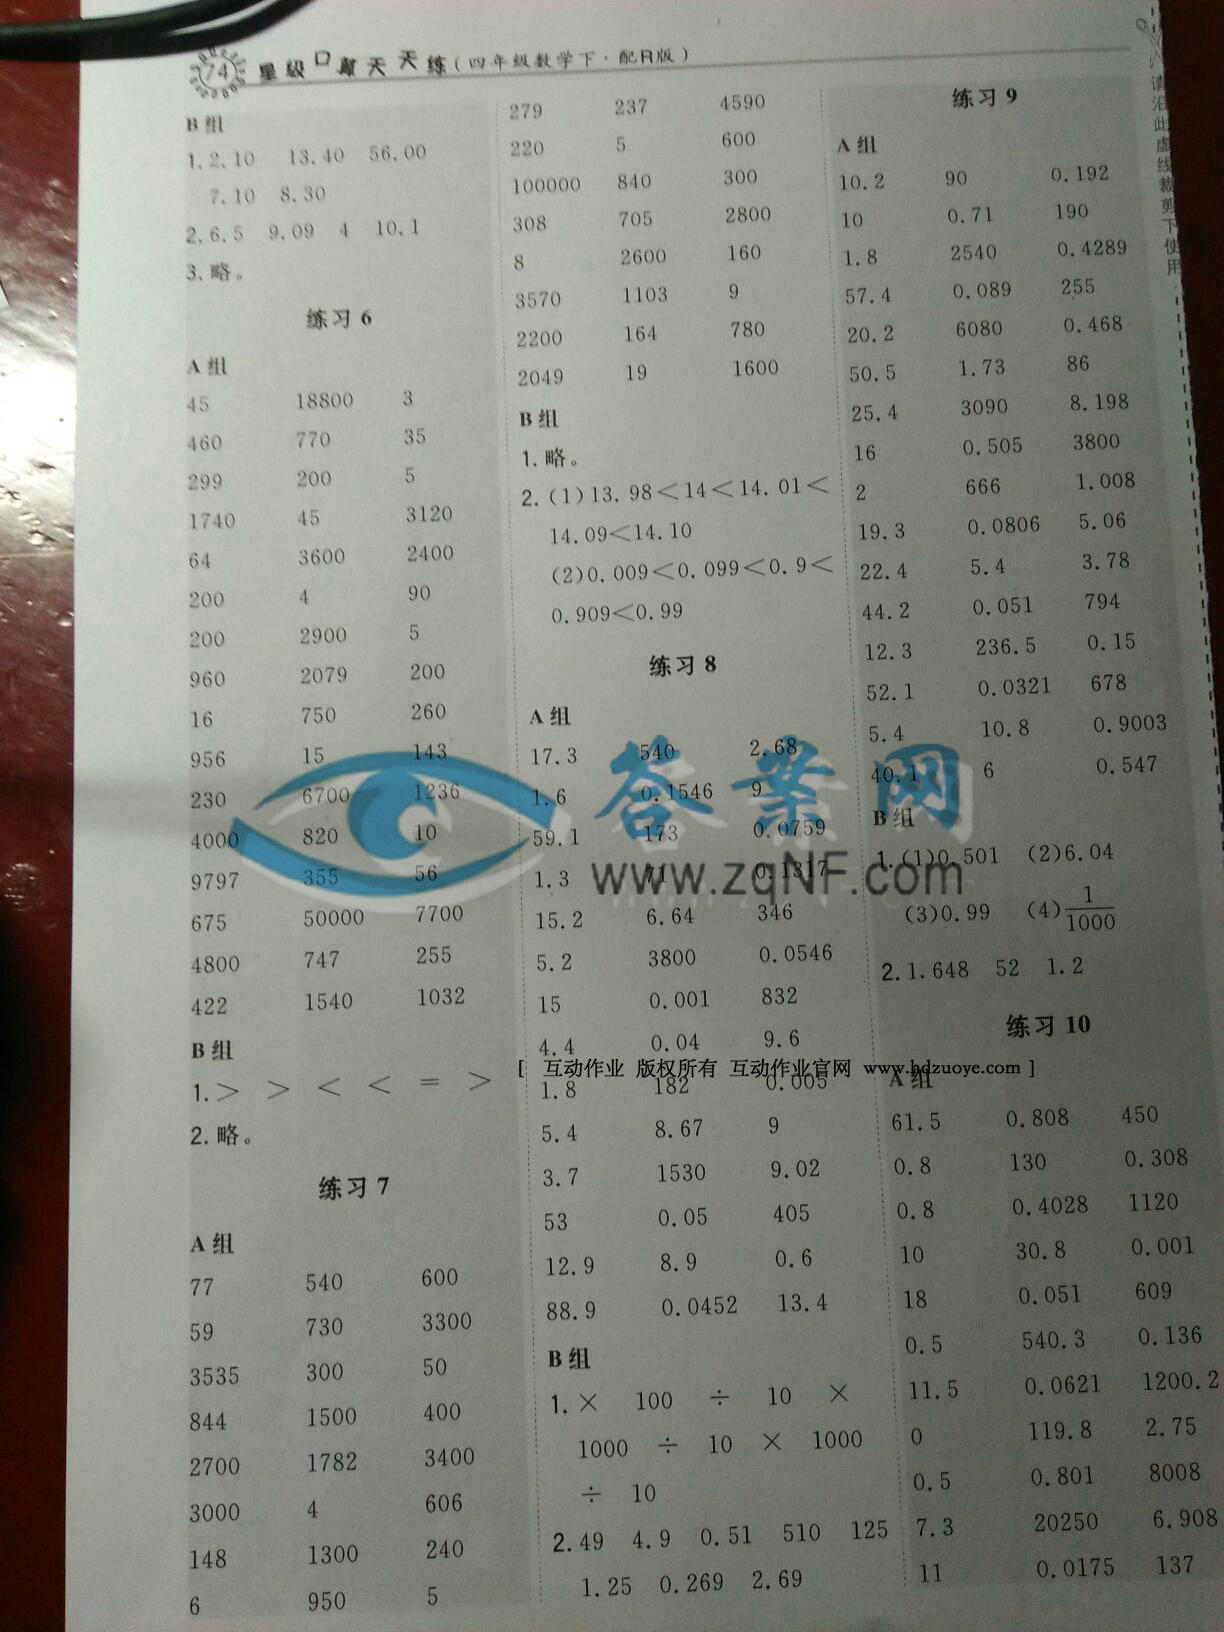 74 星级口算天天练(四年级数学下·配R版)
B组
1.2.10 13.40 56.00
7.10 8.30
2.6.5 9.09 4 10.1
3.略。
练习6
A组
45 18800 3
460 770 35
299 200 5
1740 45 3120
64 3600 2400
200 4 90
200 2900 5
960 2079 200
16 750 260
956 15 143
230 6700 1236
4000 820 10
9797 355 56
675 50000 7700
4800 747 255
422 1540 1032
B组
1.> > < < = >
2.略。
练习7
A组
77 540 600
59 730 3300
3535 300 50
844 1500 400
2700 1782 3400
3000 4 606
148 1300 240
6 950 5
279 237 4590
220 5 600
100000 840 300
308 705 2800
8 2600 160
3570 1103 9
2200 164 780
2049 19 1600
B组
1.略。
2.(1)13.98<14<14.01<
14.09<14.10
(2)0.009<0.099<0.9<
0.909<0.99
练习8
A组
17.3 540 2.68
1.6 0.1546 9
59.1 173 0.0759
1.3 71 0.1317
15.2 6.64 346
5.2 3800 0.0546
15 0.001 832
4.4 0.04 9.6
1.8 182 0.005
5.4 8.67 9
3.7 1530 9.02
53 0.05 405
12.9 8.9 0.6
88.9 0.0452 13.4
B组
1.× 100 ÷ 10 ×
1000 ÷ 10 × 1000
÷ 10
2.49 4.9 0.51 510 125
1.25 0.269 2.69
练习9
A组
10.2 90 0.192
10 0.71 190
1.8 2540 0.4289
57.4 0.089 255
20.2 6080 0.468
50.5 1.73 86
25.4 3090 8.198
16 0.505 3800
2 666 1.008
19.3 0.0806 5.06
22.4 5.4 3.78
44.2 0.051 794
12.3 236.5 0.15
52.1 0.0321 678
5.4 10.8 0.9003
40.1 6 0.547
B组
1.(1)0.501 (2)6.04
(3)0.99 (4)1/1000
2.1.648 52 1.2
练习10
A组
61.5 0.808 450
0.8 130 0.308
0.8 0.4028 1120
10 30.8 0.001
18 0.051 609
0.5 540.3 0.136
11.5 0.0621 1200.2
0 119.8 2.75
0.5 0.801 8008
7.3 20250 6.908
11 0.0175 137
请沿此虚线裁剪下使用
答案网
www.zqNF.com
[ 互动作业 版权所有 互动作业官网 www.hdzuoye.com ]